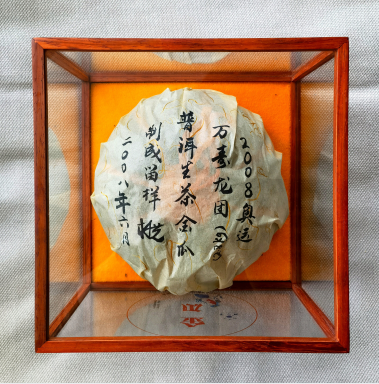 2008奥运
万寿龙团
普洱生茶金瓜
制成留样
二〇〇八年六月